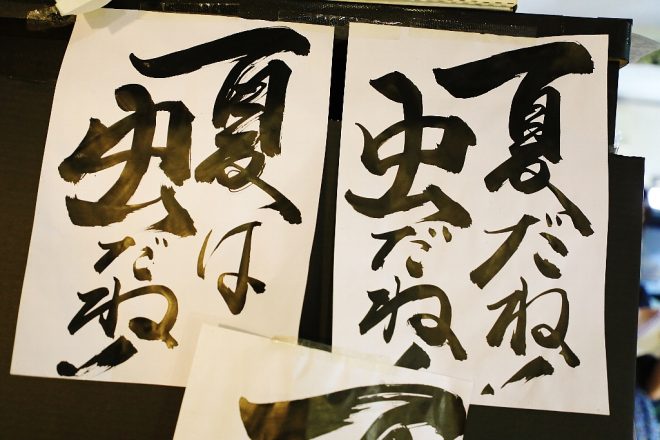 夏だね!
虫だね!
夏は
虫だね!